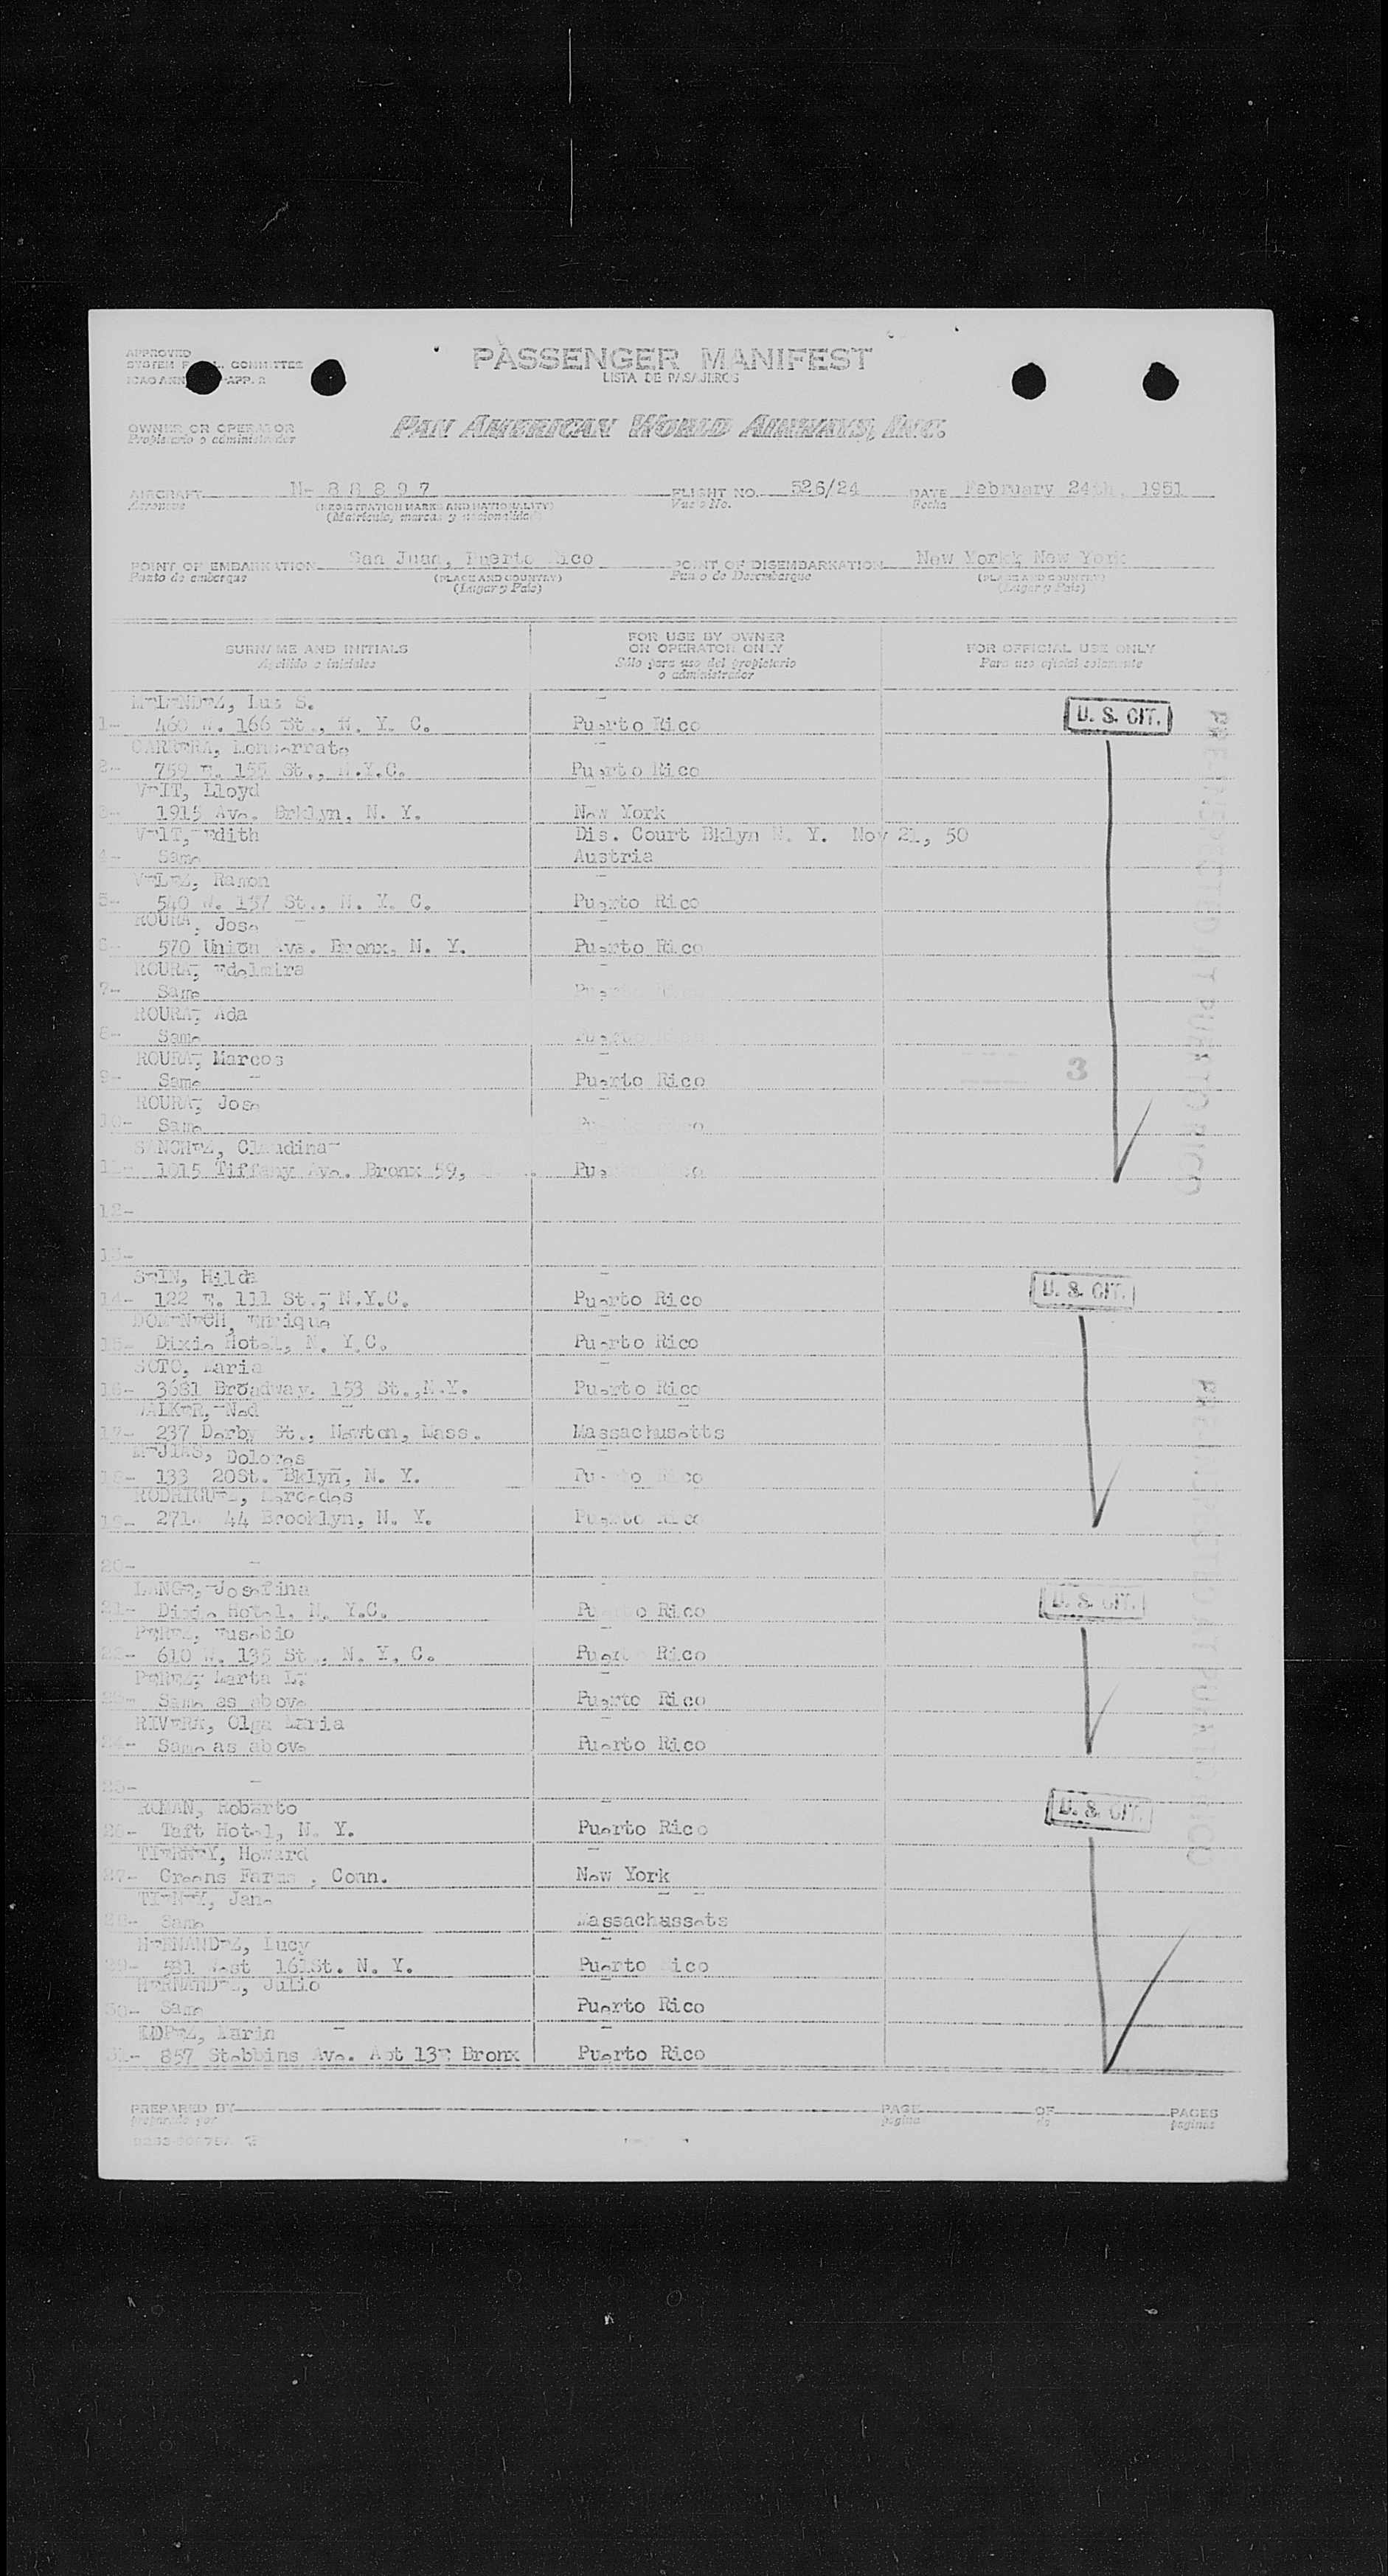 APPROVED
SYSTEM COMMITTEE
ICAO ANN APP. 2
PASSENGER MANIFEST
LISTA DE PASAJEROS
OWNER OR OPERATOR
Propietario o administrador
PAN AMERICAN WORLD AIRWAYS, INC.
AIRCRAFT N- 8 8 8 9 7 FLIGHT NO. 526/24 DATE February 24th, 1951
Aeronave (REGISTRATION MARKS AND NATIONALITY) Vuelo No. Fecha
(Matricula, marcas y nacionalidad)
POINT OF EMBARKATION San Juan, Puerto Rico POINT OF DISEMBARKATION New York, New York
Punto de embarque (PLACE AND COUNTRY) Punto de Desembarque (PLACE AND COUNTRY)
(Lugar y Pais) (Lugar y Pais)
SURNAME AND INITIALS FOR USE BY OWNER OR OPERATOR ONLY FOR OFFICIAL USE ONLY
Apellido e iniciales Sólo para uso del propietario o administrador Para uso oficial solamente
MELENDEZ, Luz S.
1- 460 W. 166 St., N. Y. C. Puerto Rico U. S. CIT.
CARRERA, Monserrate
2- 759 E. 155 St., N.Y.C. Puerto Rico
VEIT, Lloyd
3- 1915 Ave. Brklyn, N. Y. New York
VEIT, Edith Dis. Court Bklyn N. Y. Nov 21, 50
4- Same Austria
VELEZ, Ramon
5- 540 W. 137 St., N. Y. C. Puerto Rico
ROURA, Jose
6- 570 Union Ave. Bronx, N. Y. Puerto Rico
ROURA, Edelmira
7- Same
ROURA, Ada
8- Same Puerto
ROURA, Marcos
9- Same Puerto Rico 3
ROURA, Jose
10- Same
SANCHEZ, Claudina
11- 1015 Tiffany Ave. Bronx 59,
12-
13-
SEIN, Hilda
14- 122 E. 111 St., N.Y.C. Puerto Rico U. S. CIT.
DOMENECH, Enrique
15- Dixie Hotel, N. Y.C. Puerto Rico
SOTO, Maria
16- 3681 Broadway. 153 St.,N.Y. Puerto Rico
WALKER, Ned
17- 237 Derby St., Newton, Mass. Massachusetts
MEJIAS, Dolores
18- 133 20St. Bklyn, N. Y.
RODRIGUEZ, Mercedes
19- 271 44 Brooklyn, N. Y. Puerto Rico
20-
LANGE, Josefina
21- Dixie Hotel. N. Y.C. Puerto Rico U. S. CIT.
PEREZ, Eusebio
22- 610 W. 135 St., N. Y. C. Puerto Rico
PEREZ, Marta L.
23- Same as above Puerto Rico
RIVERA, Olga Maria
24- Same as above Puerto Rico
25-
ROMAN, Roberto
26- Taft Hotel, N. Y. Puerto Rico U. S. CIT.
TIERNEY, Howard
27- Greens Farms , Conn. New York
TIENEY, Jane
28- Same Massachussets
HERNANDEZ, Lucy
29- 581 West 161St. N. Y. Puerto Rico
HERNANDEZ, Julio
30- Same Puerto Rico
LOPEZ, Marin
31- 857 Stebbins Ave. Apt 13E Bronx Puerto Rico
PRE-INSPECTED AT PUERTO RICO
PRE-INSPECTED AT PUERTO RICO
PREPARED BY PAGE OF PAGES
preparado por pagina de paginas